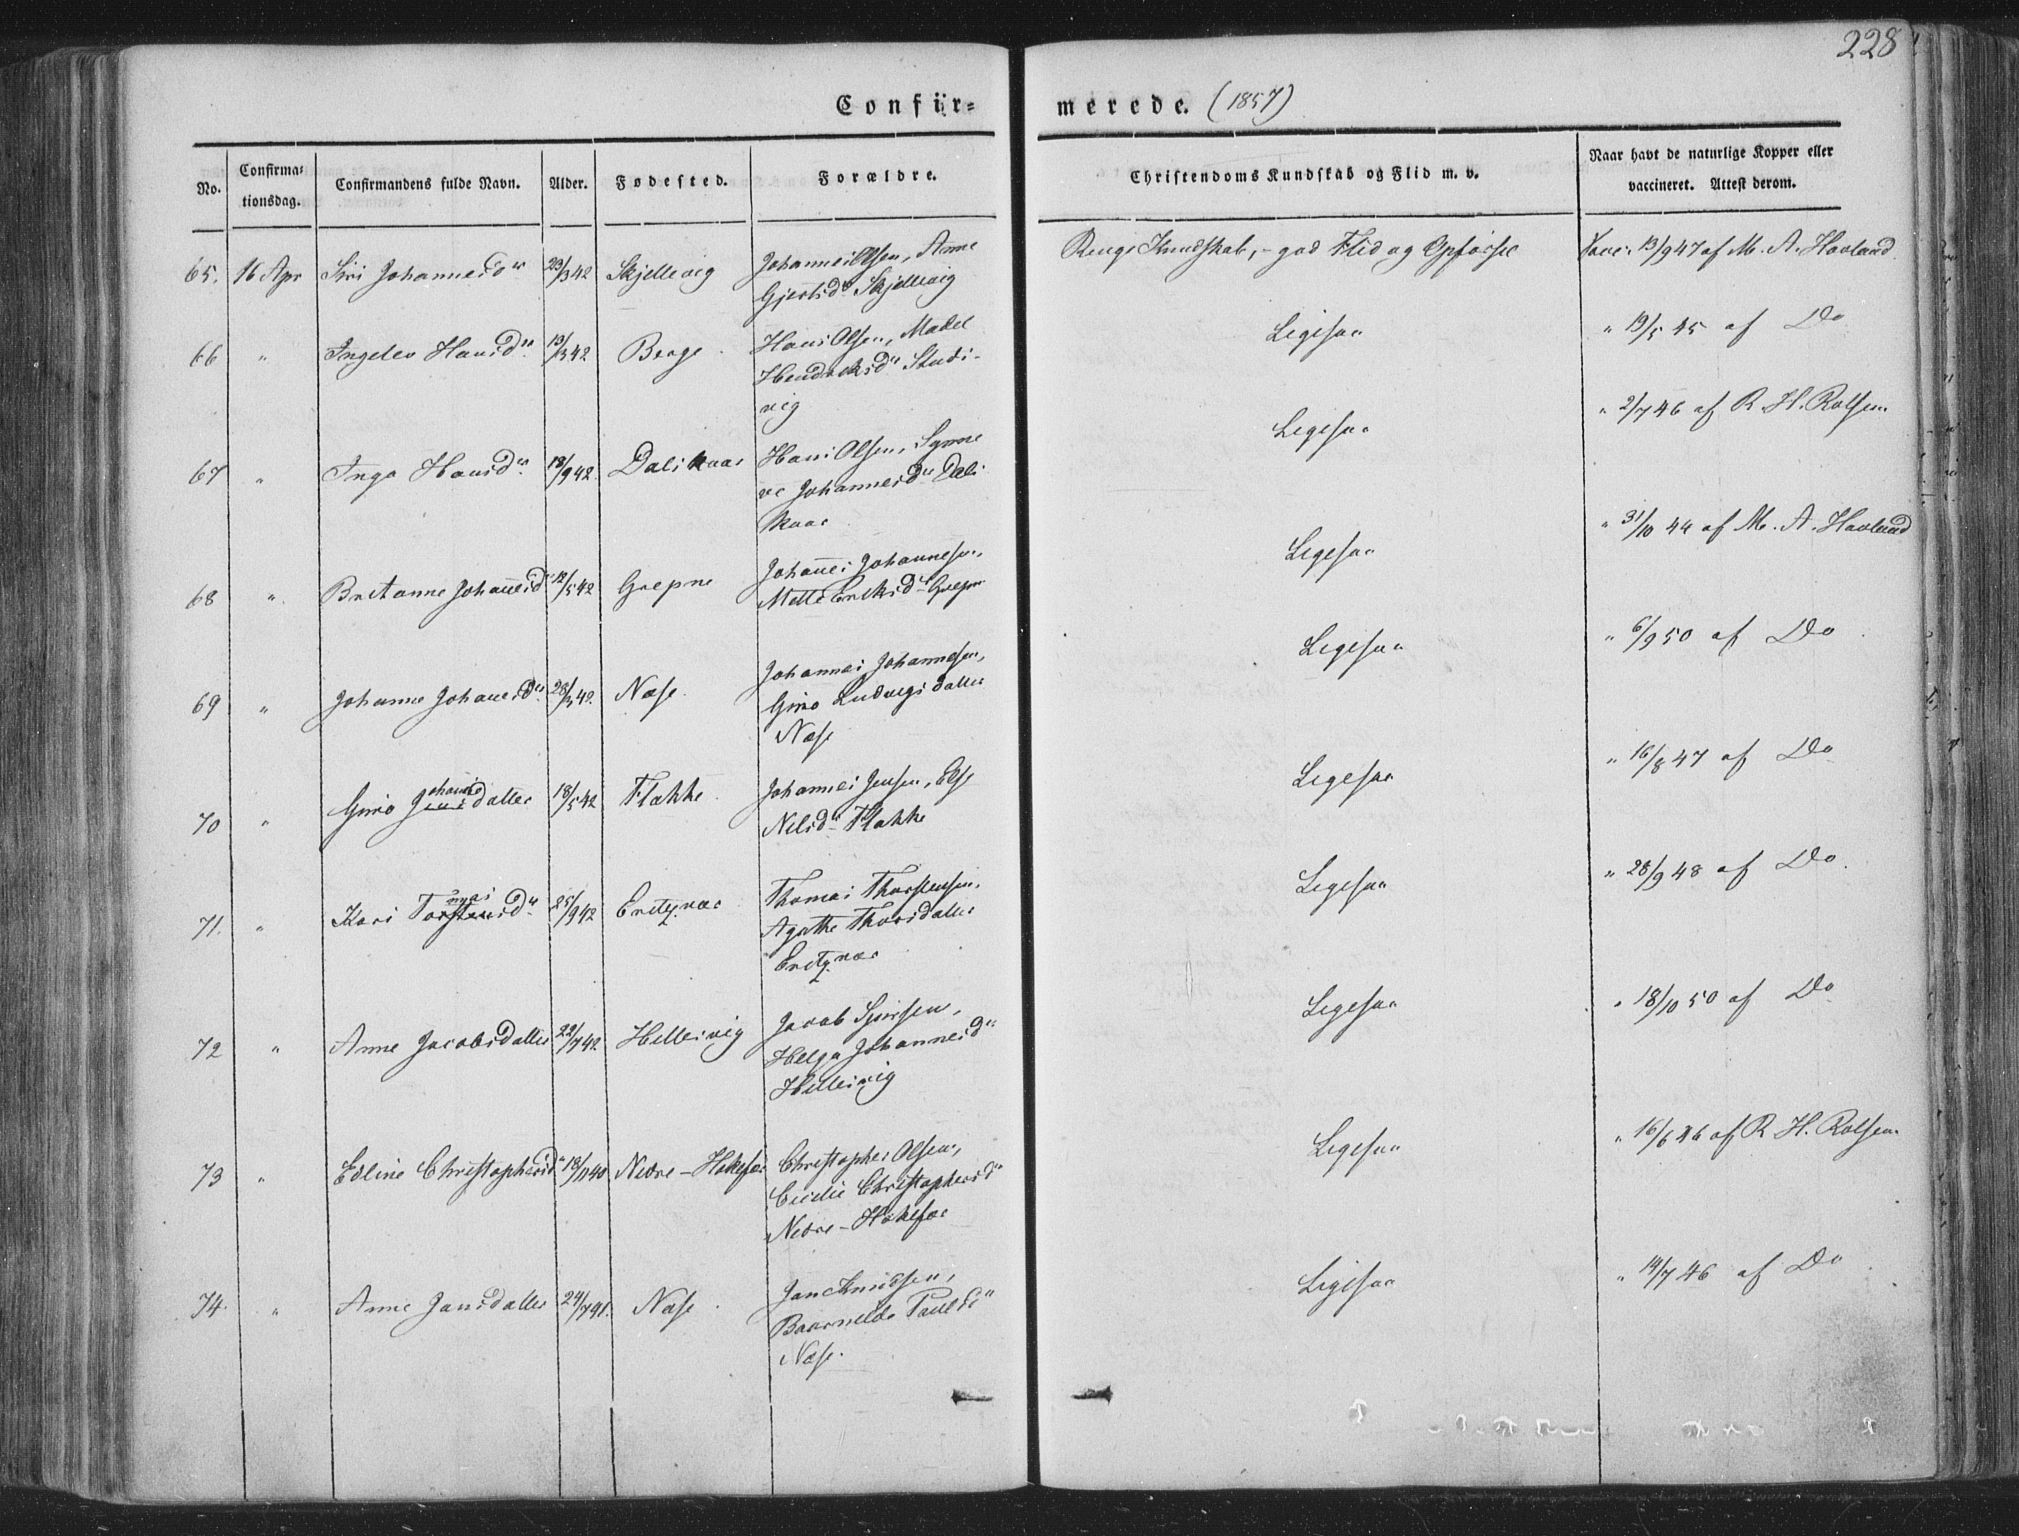 228
Confir=
merede. (1857)
No.
Confirma=
tionsdag.
Confirmandens fulde Navn.
Alder.
Fødested.
Forældre.
Christendoms Kundskab og Flid m. v.
Naar havt de naturlige Kopper eller
vaccineret. Attest derom.
65. 16 Apr Siri Johannesdr 23/3 42 Skjellevig Johannes Olsen, Anne
Gjertsdr Skjellevig
Ringe Kundskab, - god Flid og Opførsel Vacc. 13/9 47 af M. A. Havland
66 " Ingelev Hansdr. 13/3 42 Berge. Hans Olsen, Madel
Hendricksdr Studi-
vig
Ligesaa " 19/5 45 af Do
67 " Inga Hansdr. 18/9 42. Daliskaar Hans Olsen, Synne
ve Johannesdr Dali
skaar
Ligesaa " 2/7 46 af R. H. Rolfsen.
68 " Britanne Johannesdr 12/5 42 Grepne Johannes Johannesen,
Mette Ericksdr Grepne
Ligesaa " 31/10 44 af M. A. Havland
69 " Johanne Johannesdr. 28/3 42. Næse Johannes Johannesen,
Giøro Ludvigsdatter
Næse
Ligesaa " 6/9 50 af Do.
70 " Giøro Johannesdatter 18/5 42 Flakke. Johannes Jensen, Else
Nilsdr Flakke
Ligesaa " 16/8 47 af Do
71. " Kari Tomasdr 25/9 42 Eritznæs Thomas Thorstensen,
Agathe Thorsdatter
Eritznæs
Ligesaa " 28/9 48 af Do.
72 " Anne Jacobsdatter 22/7 42 Hellesvig Jacob Sjursen,
Helga Johannesdr
Hellesvig
Ligesaa " 18/10 50 af Do
73 " Edline Christophersdr 18/11 40 Nedre-Hokefær Christopher Olsen,
Cicilie Christophersdr
Nedre-Hokefær
Ligesaa " 16/6 46 af R H. Rolfsen.
74. " Anne Jansdatter 24/7 41. Næse. Jan Knudsen,
Baarnilde Paulsdr
Næse.
Ligesaa " 14/7 46 af Do